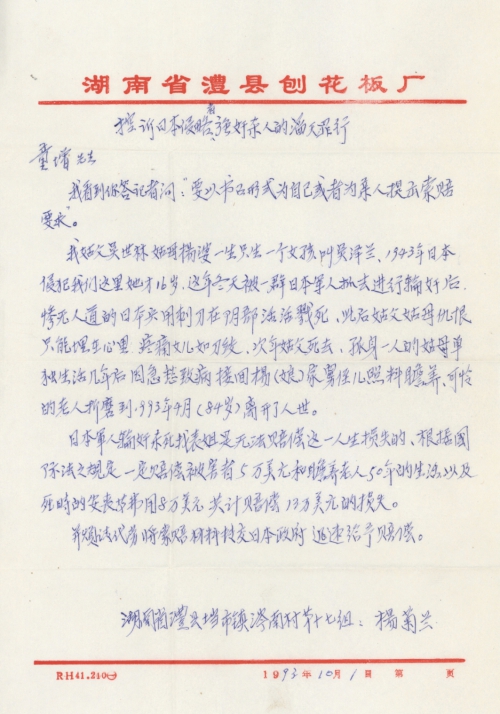 湖南省澧县刨花板厂
控诉日本侵略者强奸杀人的滔天罪行
童增先生
我看到你答记者问：“要以书面形式为自己或者为亲人提出索赔
要求”。
我姑父吴世林姑母杨婆一生只生一个女孩叫吴泽兰，1943年日本
侵犯我们这里她才16岁，这年冬天被一群日本军人抓去进行轮奸后
惨无人道的日本兵用刺刀在阴部活活戳死，此后姑父姑母仇恨
只能埋在心里，疼痛女儿如刀绞，次年姑父死去，孤身一人的姑母单
独生活几年后因急愁致病接回杨（娘）家舅侄儿照料赡养，可怜
的老人折磨到1993年4月（84岁）离开了人世。
日本军人轮奸杀死我表姐是无法赔偿这一人生损失的，根据国
际法之规定一定赔偿被害者5万美元和赡养老人50年的生活以及
死时的安丧等费用8万美元，共计赔偿13万美元的损失。
并烦请代劳将索赔材料转交日本政府 迅速给予赔偿。
湖南省澧县垱市镇涔南村第十七组：杨菊兰
RH41.210
1993年10月1日 第 页